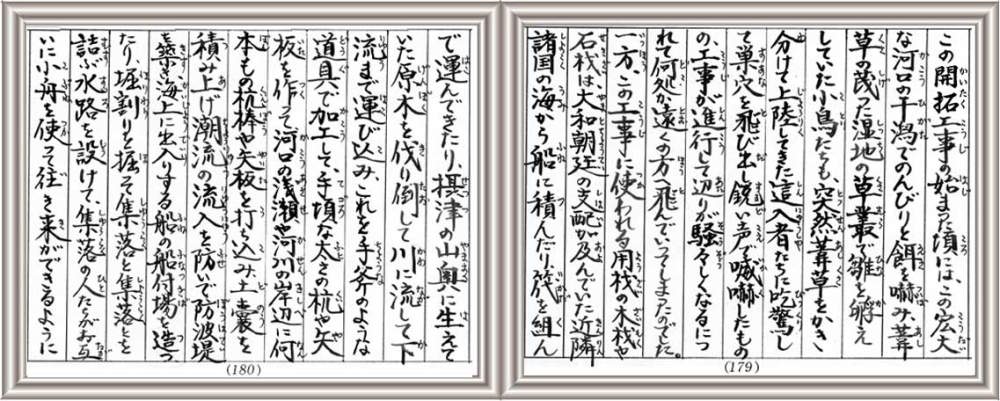 この開拓工事の始まった頃には、この宏大
な河口の干潟でのんびりと餌を嚇み、葦
草の茂った湿地の草叢で雛を孵え
していた小鳥たちも、突然葦草をかき
分けて上陸してきた這入者たちに吃驚し
て巣穴を飛び出し鋭い声を嚇したもの
の、工事が進行して辺りが騒々しくなるにつ
れて何処か遠くの方へ飛んでいってしまったのでした。
一方、この工事に使われる用材の木材や
石材は、大和朝廷の支配が及んでいた近隣
諸国の海から船に積んだり、筏を組ん
(179)
で運んできたり、摂津の山奥に生えて
いた原木を伐り倒して川に流して下
流まで運び込み、これを手斧のような
道具で加工して、手頃な太さの杭や矢
板を作って河口の浅瀬や河川の岸辺に何
本もの杭棒や矢板を打ち込み、土嚢を
積み上げ潮流の流入を防いで防波堤
を築き海上に出入りする船の船付場を造っ
たり、堀割りを掘って集落と集落とを
結ぶ水路を設けて、集落の人たちがお互
いに小舟を使って往き来ができるように
(180)